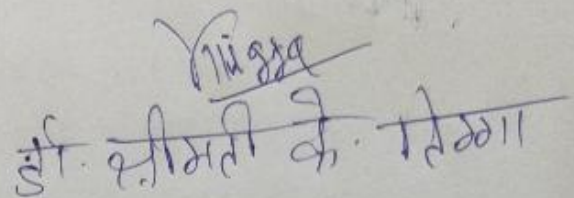 डॉ. श्रीमती के. तिग्गा